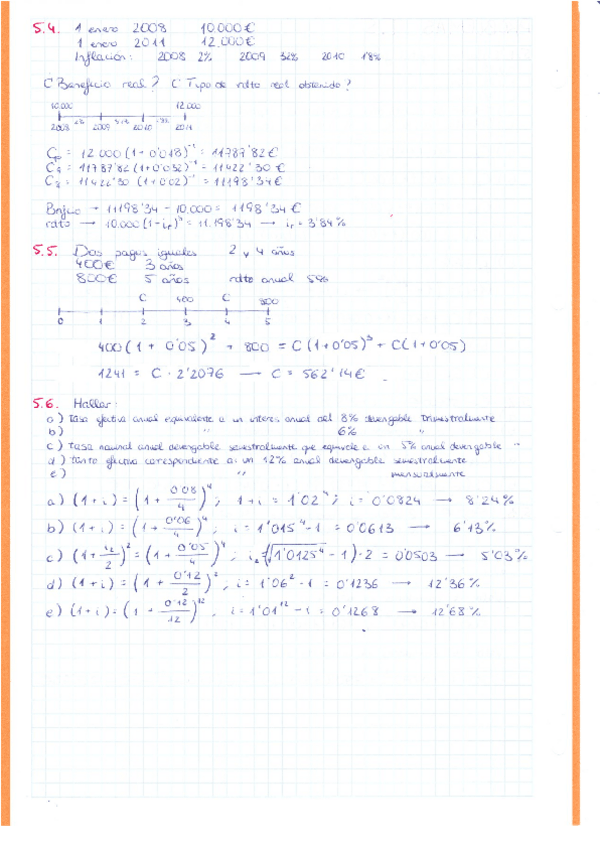 5.4. 1 enero 2008 10.000€
1 enero 2011 12.000€
Inflación: 2008 2% 2009 3'2% 2010 1'8%
¿Beneficio real? ¿Tipo de rdto real obtenido?
10.000 12.000
2% 3'2% 1'8%
2008 2009 2010 2011
= 12.000 (1+0'018)⁻¹ = 11787'82€
= 11787'82 (1+0'032)⁻¹ = 11422'30€
= 11422'30 (1+0'02)⁻¹ = 11198'34€
Bnfcio → 11198'34 - 10.000 = 1198'34€
rdto → 10.000(1-iᵣ)³ = 11.198'34 → iᵣ = 3'84%
5.5. Dos pagos iguales 2 y 4 años
400€ 3 años
800€ 5 años rdto anual 5%
C 400 C 800
0 1 2 3 4 5
400(1 + 0'05)² + 800 = C(1+0'05)³ + C(1+0'05)
1241 = C · 2'2076 → C = 562'14€
5.6. Hallar:
a) Tasa efectiva anual equivalente a un interés anual del 8% devengable trimestralmente
b) " 6% "
c) Tasa nominal anual devengable semestralmente que equivale a un 5% anual devengable "
d) tanto efectivo correspondiente a: un 12% anual devengable semestralmente
e) " mensualmente
a) (1+i) = (1 + 0'08/4)⁴ ; 1+i = 1'02⁴ ; i = 0'0824 → 8'24%
b) (1+i) = (1 + 0'06/4)⁴ ; i = 1'015⁴ - 1 = 0'0613 → 6'13%
c) (1 + i₂/2)² = (1 + 0'05/4)⁴ ; i₂ = (√1'0125⁴ - 1)·2 = 0'0503 → 5'03%
d) (1+i) = (1 + 0'12/2)² ; i = 1'06² - 1 = 0'1236 → 12'36%
e) (1+i) = (1 + 0'12/12)¹² ; i = 1'01¹² - 1 = 0'1268 → 12'68%